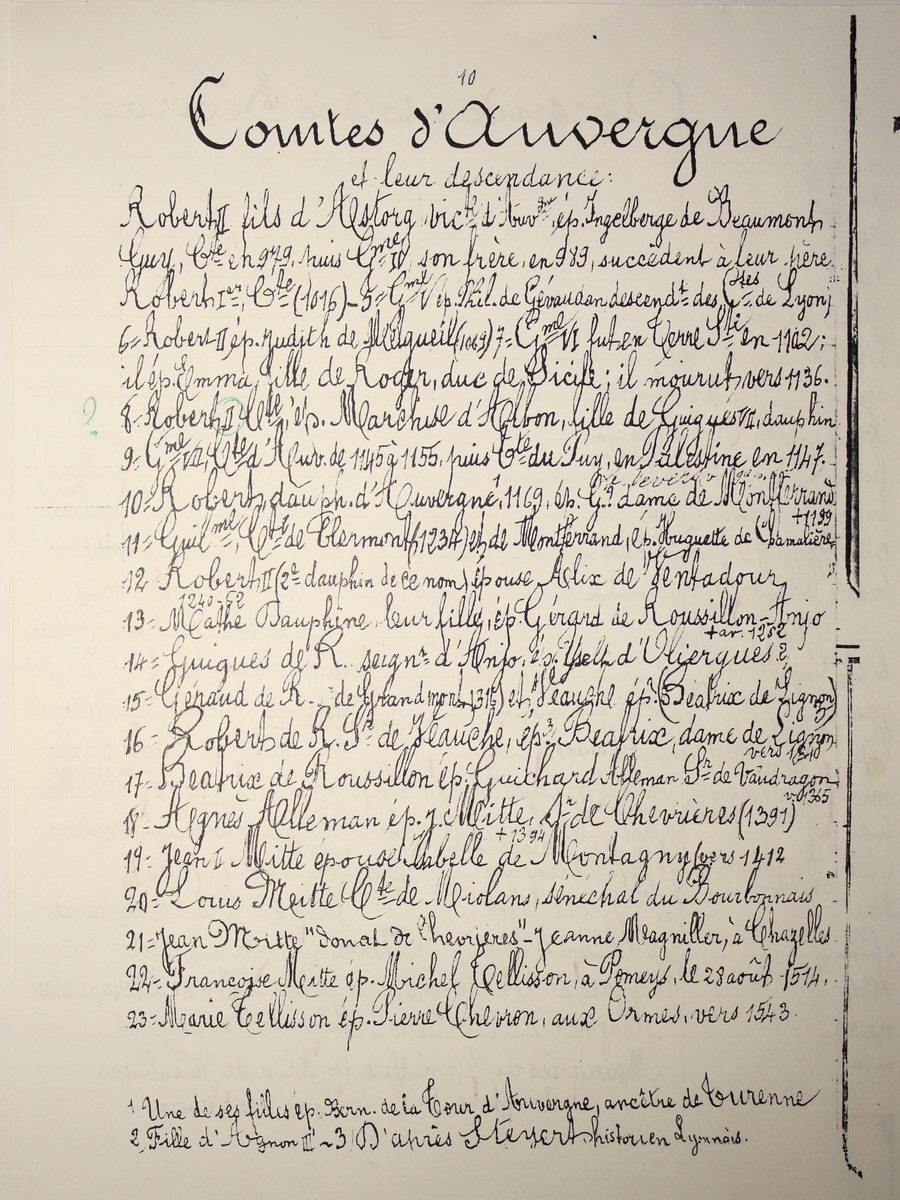 10
Comtes d'Auvergne
et leur descendance:
Robert II fils d'Astorg victe d'Auvgne, ép. Ingelberge de Beaumont
Guy, Cte en 979, puis Gme IV son frère, en 989, succèdent à leur père
Robert Ier, Cte (1016) - 5= Gme V ép. Phil. de Gévaudan descendt des Ctes de Lyon,
6= Robert II ép. Judith de Melgueil (1069) 7= Gme VI fut en Terre Ste en 1102;
il ép. Emma, fille de Roger, duc de Sicile; il mourut vers 1136.
? 8= Robert II Cte, ép. Marchise d'Albon, fille de Guigues VII, dauphin
9= Gme VII, Cte d'Auv. de 1145 à 1155, puis Cte du Puy, en Palestine en 1147.
10= Robert, dauph. d'Auvergne¹, 1169, ép. G. dame de Montferrand
+1199
11= Guilme, Cte de Clermont (1234) et de Montferrand, ép. Huguette de Chamalière
12 Robert II (2d dauphin de ce nom) épouse Alix de Ventadour
1240-62
13= Mathe Dauphine leur fille, ép. Gérard de Roussillon-Anjo
+av. 1252
14= Guigues de R. seignr d'Anjo, ép. Yselt d'Oliergues 2
15= Géraud de R. de Grandmont (1316) et Veauche ép³. (Béatrix de Lignon)
16= Robert de R. Sr de Veauche, ép³ Béatrix, dame de Lignon
vers 1340
17= Beatrix de Roussillon ép. Guichard Alleman Sr de Vaudragon
v. 1365
18- Agnès Alleman ép. J. Mitte, Sr de Chevrières (1391)
+1394
19= Jean I Mitte épouse Isabelle de Montagny vers 1412
20= Louis Mitte Cte de Miolans, sénéchal du Bourbonnais
21= Jean Mitte "donat de Chevrières" - Jeanne Magniller, à Chazelles
22= Françoise Mitte ép. Michel Tellisson, à Pomeys, le 28 août 1514.
23= Marie Tellisson ép. Pierre Chevron, aux Ormes, vers 1543.
1 Une de ses filles ép. Bern. de la Tour d'Auvergne, ancêtre de Turenne
2, Fille d'Agnon II ~ 3) D'après Steyert historien Lyonnais.